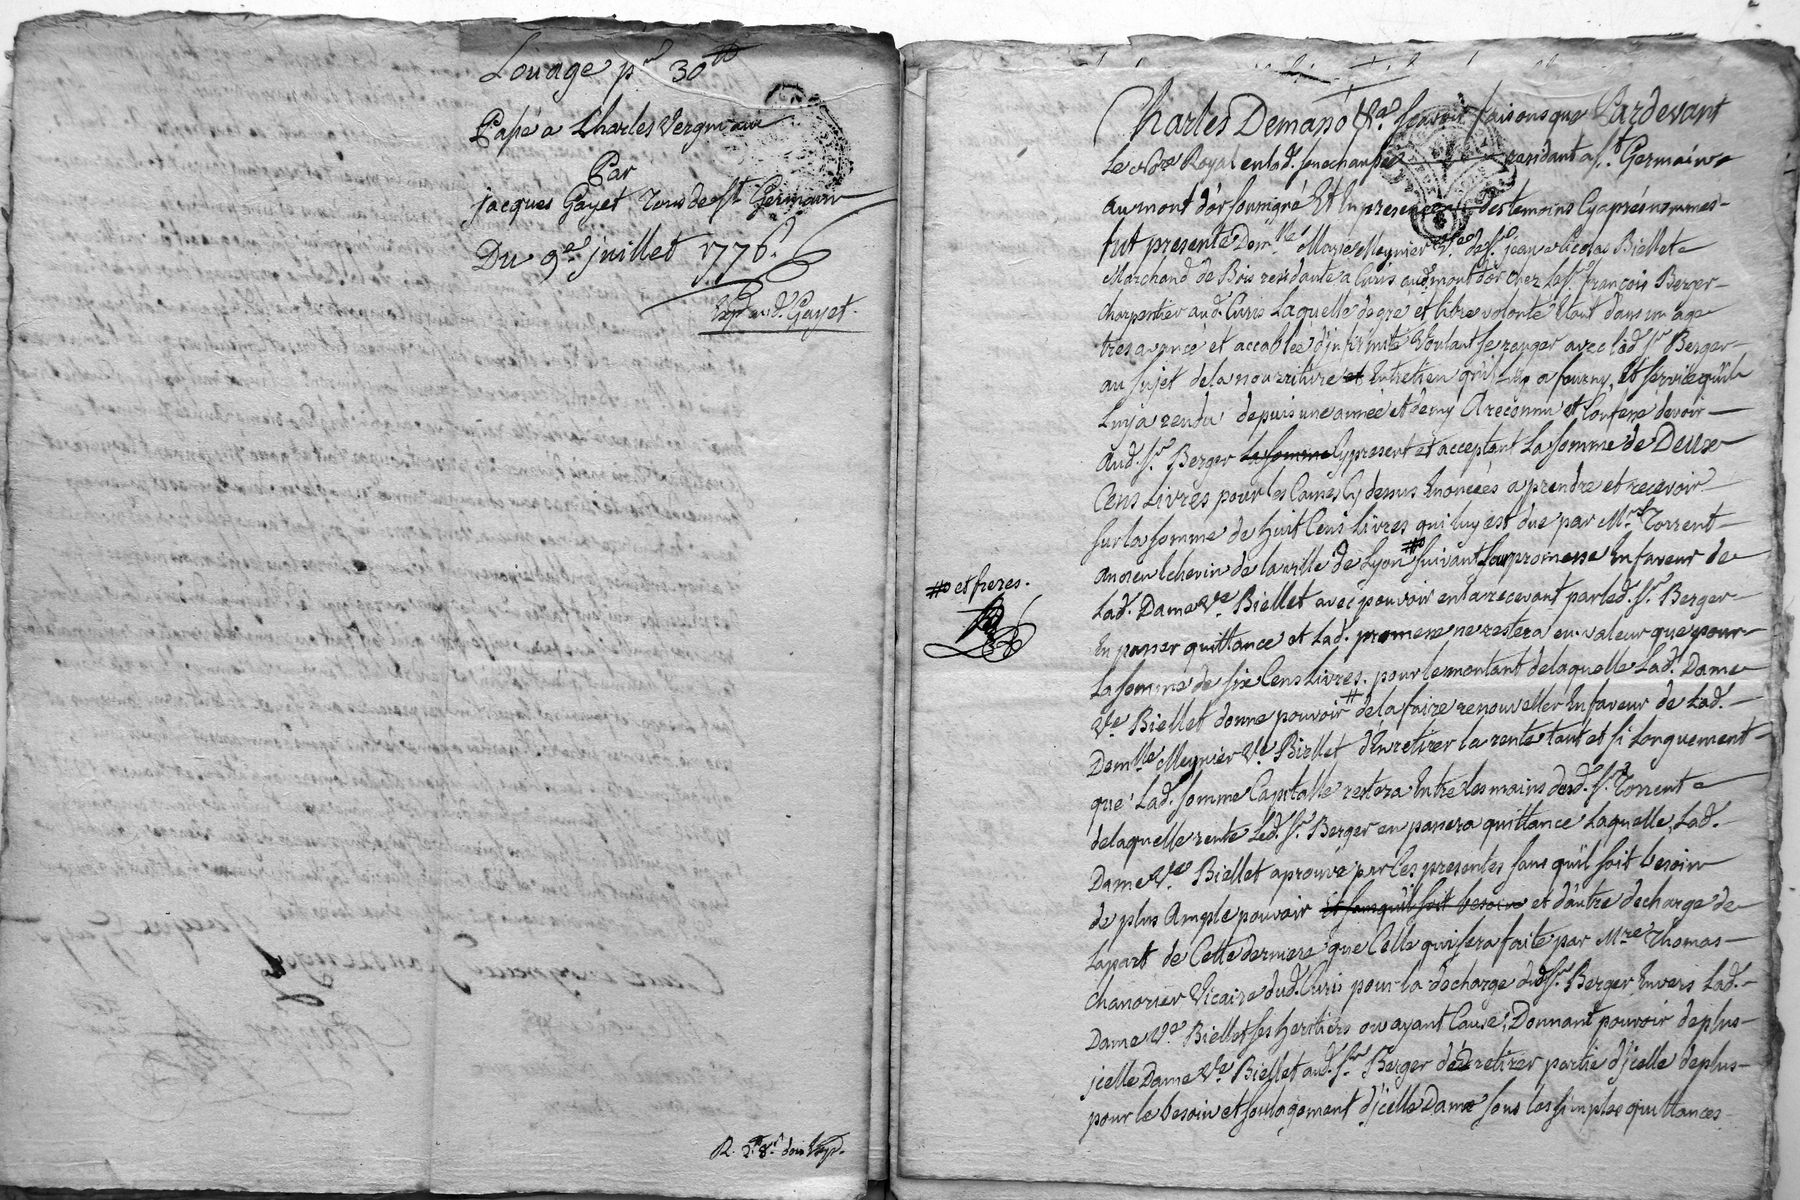 Louage pr. 30 tt
Passé a Charles Vergniaux
Par
jacques Gayet Tous de st. Germain
Du 9e. juillet 1776.
Exp. aud. Gayet.
R. 2 s. 8 d.
Charles Demano &a. Scavoir faisons que Pardevant
le Nore. Royal en lad. senechaussée residant a st. Germain
au mont d'or soussigné Et En presence des temoins Cy aprés nommes
fut presente Demlle. Marie Meynier Ve. de sr. jean Nicolas Biellet
Marchand de Bois residante a Curis aud. mont d'or chez le sr. françois Berger
Charpentier aud. Curis Laquelle de gré et libre volonté Etant dans un age
tres avancé et accablée d'infirmité Voulant se renger avec led. sr. Berger
au sujet de la nourriture et Entretien qu'il luy a fourny, et service qu'il
Luy a rendu depuis une année et demy A reconnu et Confessé devoir
Aud. sr. Berger la somme Cy present et acceptant La somme de Deux
Cens Livres pour les Causes Cy dessus Enoncées a prendre et recevoir
sur la somme de huit Cens livres qui luy est due par Mr. Torrent
ancien Echevin de la ville de Lyon # suivant sa promesse En faveur de
# et freres.
Lad. Dame Ve. Biellet avec pouvoir en la recevant par led. sr. Berger
En passer quittance et Lad. promesse ne restera en valeur que pour
La somme de six Cens Livres. pour le montant de laquelle Lad. Dame
Ve. Biellet donne pouvoir # de la faire renouveller En faveur de Lad.
Demlle. Meynier Ve. Biellet d'En retirer la rente tant et si Longuement
que Lad. somme Capitalle restera Entre les mains dud. sr. Torrent
de laquelle rente Led. sr. Berger en passera quittance Laquelle, Lad.
Dame Ve. Biellet aprouve par Ces presentes sans qu'il soit besoin
de plus Ample pouvoir et sans qu'il soit besoin et d'autre decharge de
La part de Cette derniere que Celle qui sera faite par Mre. Thomas
Chanorier Vicaire dud. Curis pour la decharge dud. sr. Berger Envers Lad.
Dame Ve. Biellet ses heritiers ou ayant Cause; Donnant pouvoir de plus
jcelle Dame Ve. Biellet aud. sr. Berger de retirer partie d'jcelle de plus
pour le besoin et soulagement d'jcelle Dame sous les simples quittances